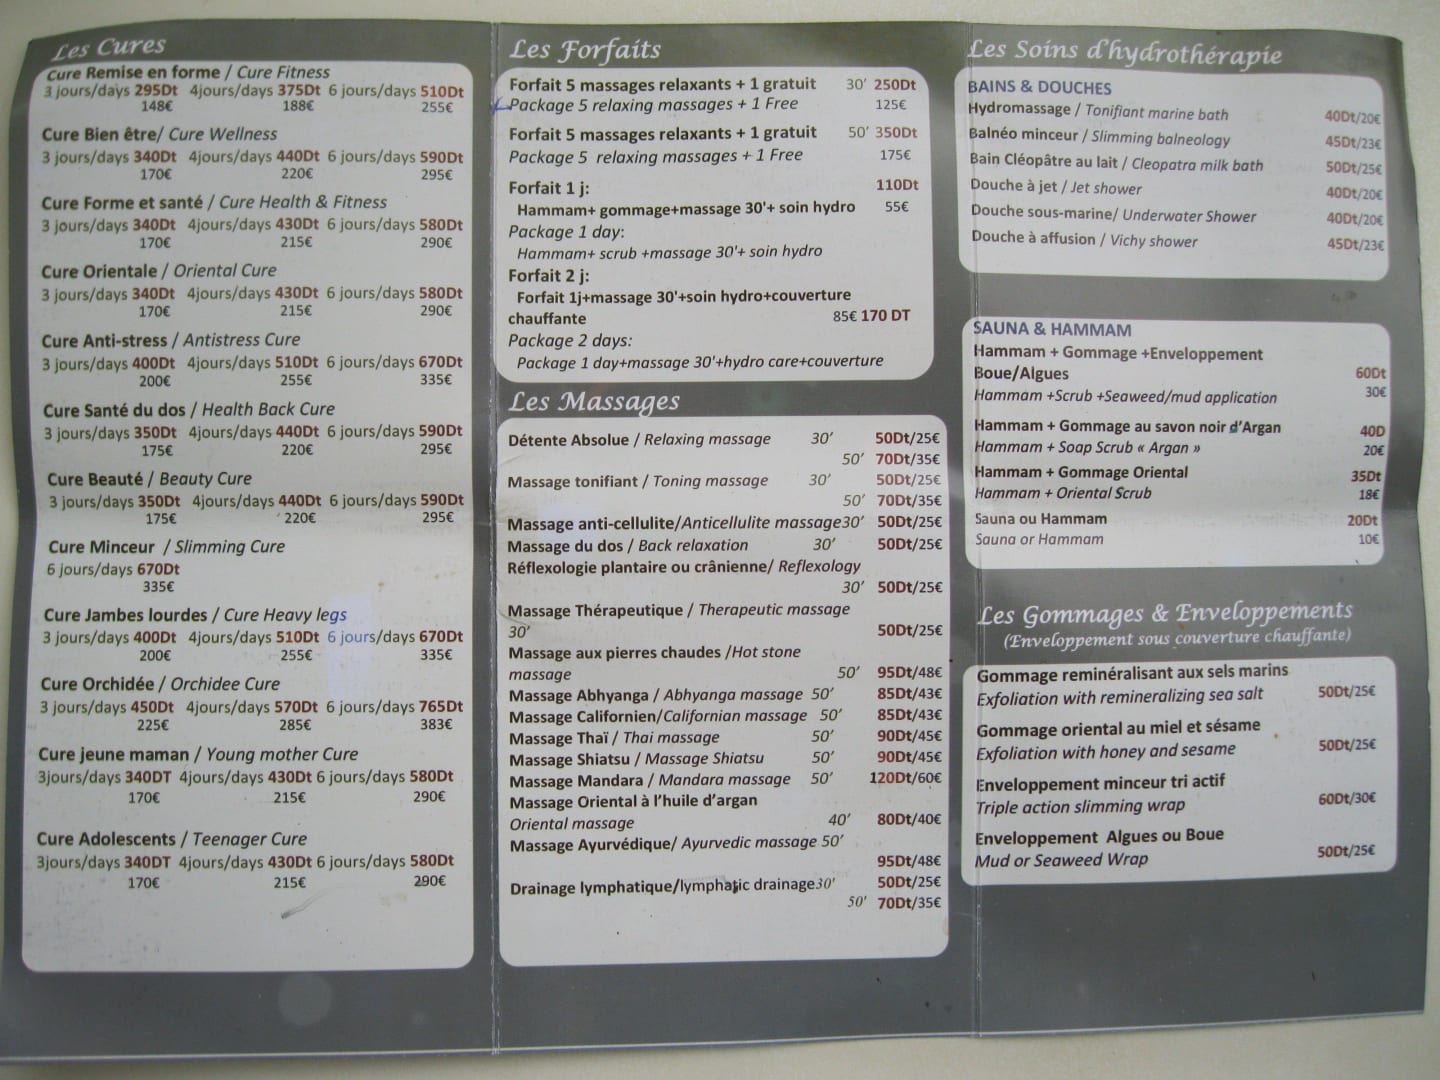 Les Cures
Cure Remise en forme / Cure Fitness
3 jours/days 295Dt 4jours/days 375Dt 6 jours/days 510Dt
148€ 188€ 255€
Cure Bien être/ Cure Wellness
3 jours/days 340Dt 4jours/days 440Dt 6 jours/days 590Dt
170€ 220€ 295€
Cure Forme et santé / Cure Health & Fitness
3 jours/days 340Dt 4jours/days 430Dt 6 jours/days 580Dt
170€ 215€ 290€
Cure Orientale / Oriental Cure
3 jours/days 340Dt 4jours/days 430Dt 6 jours/days 580Dt
170€ 215€ 290€
Cure Anti-stress / Antistress Cure
3 jours/days 400Dt 4jours/days 510Dt 6 jours/days 670Dt
200€ 255€ 335€
Cure Santé du dos / Health Back Cure
3 jours/days 350Dt 4jours/days 440Dt 6 jours/days 590Dt
175€ 220€ 295€
Cure Beauté / Beauty Cure
3 jours/days 350Dt 4jours/days 440Dt 6 jours/days 590Dt
175€ 220€ 295€
Cure Minceur / Slimming Cure
6 jours/days 670Dt
335€
Cure Jambes lourdes / Cure Heavy legs
3 jours/days 400Dt 4jours/days 510Dt 6 jours/days 670Dt
200€ 255€ 335€
Cure Orchidée / Orchidee Cure
3 jours/days 450Dt 4jours/days 570Dt 6 jours/days 765Dt
225€ 285€ 383€
Cure jeune maman / Young mother Cure
3jours/days 340DT 4jours/days 430Dt 6 jours/days 580Dt
170€ 215€ 290€
Cure Adolescents / Teenager Cure
3jours/days 340DT 4jours/days 430Dt 6 jours/days 580Dt
170€ 215€ 290€
Les Forfaits
Forfait 5 massages relaxants + 1 gratuit 30' 250Dt
Package 5 relaxing massages + 1 Free 125€
Forfait 5 massages relaxants + 1 gratuit 50' 350Dt
Package 5 relaxing massages + 1 Free 175€
Forfait 1 j: 110Dt
Hammam+ gommage+massage 30'+ soin hydro 55€
Package 1 day:
Hammam+ scrub +massage 30'+ soin hydro
Forfait 2 j:
Forfait 1j+massage 30'+soin hydro+couverture
chauffante 85€ 170 DT
Package 2 days:
Package 1 day+massage 30'+hydro care+couverture
Les Massages
Détente Absolue / Relaxing massage 30' 50Dt/25€
50' 70Dt/35€
Massage tonifiant / Toning massage 30' 50Dt/25€
50' 70Dt/35€
Massage anti-cellulite/Anticellulite massage30' 50Dt/25€
Massage du dos / Back relaxation 30' 50Dt/25€
Réflexologie plantaire ou crânienne/ Reflexology
30' 50Dt/25€
Massage Thérapeutique / Therapeutic massage
30' 50Dt/25€
Massage aux pierres chaudes /Hot stone
massage 50' 95Dt/48€
Massage Abhyanga / Abhyanga massage 50' 85Dt/43€
Massage Californien/Californian massage 50' 85Dt/43€
Massage Thaï / Thai massage 50' 90Dt/45€
Massage Shiatsu / Massage Shiatsu 50' 90Dt/45€
Massage Mandara / Mandara massage 50' 120Dt/60€
Massage Oriental à l'huile d'argan
Oriental massage 40' 80Dt/40€
Massage Ayurvédique/ Ayurvedic massage 50'
95Dt/48€
Drainage lymphatique/lymphatic drainage30' 50Dt/25€
50' 70Dt/35€
Les Soins d'hydrothérapie
BAINS & DOUCHES
Hydromassage / Tonifiant marine bath 40Dt/20€
Balnéo minceur / Slimming balneology 45Dt/23€
Bain Cléopâtre au lait / Cleopatra milk bath 50Dt/25€
Douche à jet / Jet shower 40Dt/20€
Douche sous-marine/ Underwater Shower 40Dt/20€
Douche à affusion / Vichy shower 45Dt/23€
SAUNA & HAMMAM
Hammam + Gommage +Enveloppement
Boue/Algues 60Dt
Hammam +Scrub +Seaweed/mud application 30€
Hammam + Gommage au savon noir d'Argan 40D
Hammam + Soap Scrub « Argan » 20€
Hammam + Gommage Oriental 35Dt
Hammam + Oriental Scrub 18€
Sauna ou Hammam 20Dt
Sauna or Hammam 10€
Les Gommages & Enveloppements
(Enveloppement sous couverture chauffante)
Gommage reminéralisant aux sels marins
Exfoliation with remineralizing sea salt 50Dt/25€
Gommage oriental au miel et sésame
Exfoliation with honey and sesame 50Dt/25€
Enveloppement minceur tri actif
Triple action slimming wrap 60Dt/30€
Enveloppement Algues ou Boue
Mud or Seaweed Wrap 50Dt/25€